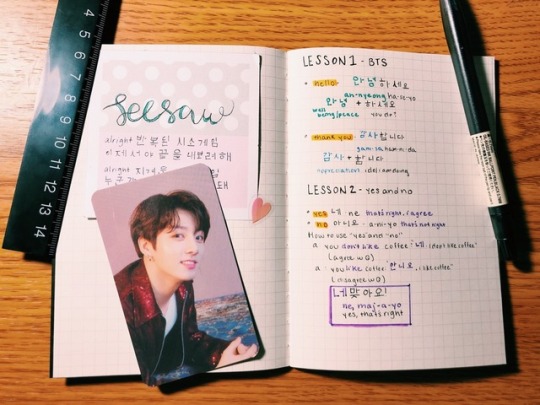 4 5 6 7 8 9 10 11 12 13 14
seesaw
alright 반복된 시소게임
이제서야 끝을 내보려 해
alright
LESSON 1 - BTS
• hello 안녕하세요
an-nyeong ha-se-yo
안녕 + 하세요
well being/peace you do?
• thank you 감사합니다
gam-sa-ham-ni-da
감사 + 합니다
appreciation I do
LESSON 2 - yes and no
• yes 네 ne that's right, I agree
• no 아니요 a-ni-yo that's not right
How to use "yes" and "no"
Q you don't like coffee?
(agree w Q)
Q you like coffee?
(disagree w Q)
네 맞아요!
ne, maj-a-yo
yes, that's right